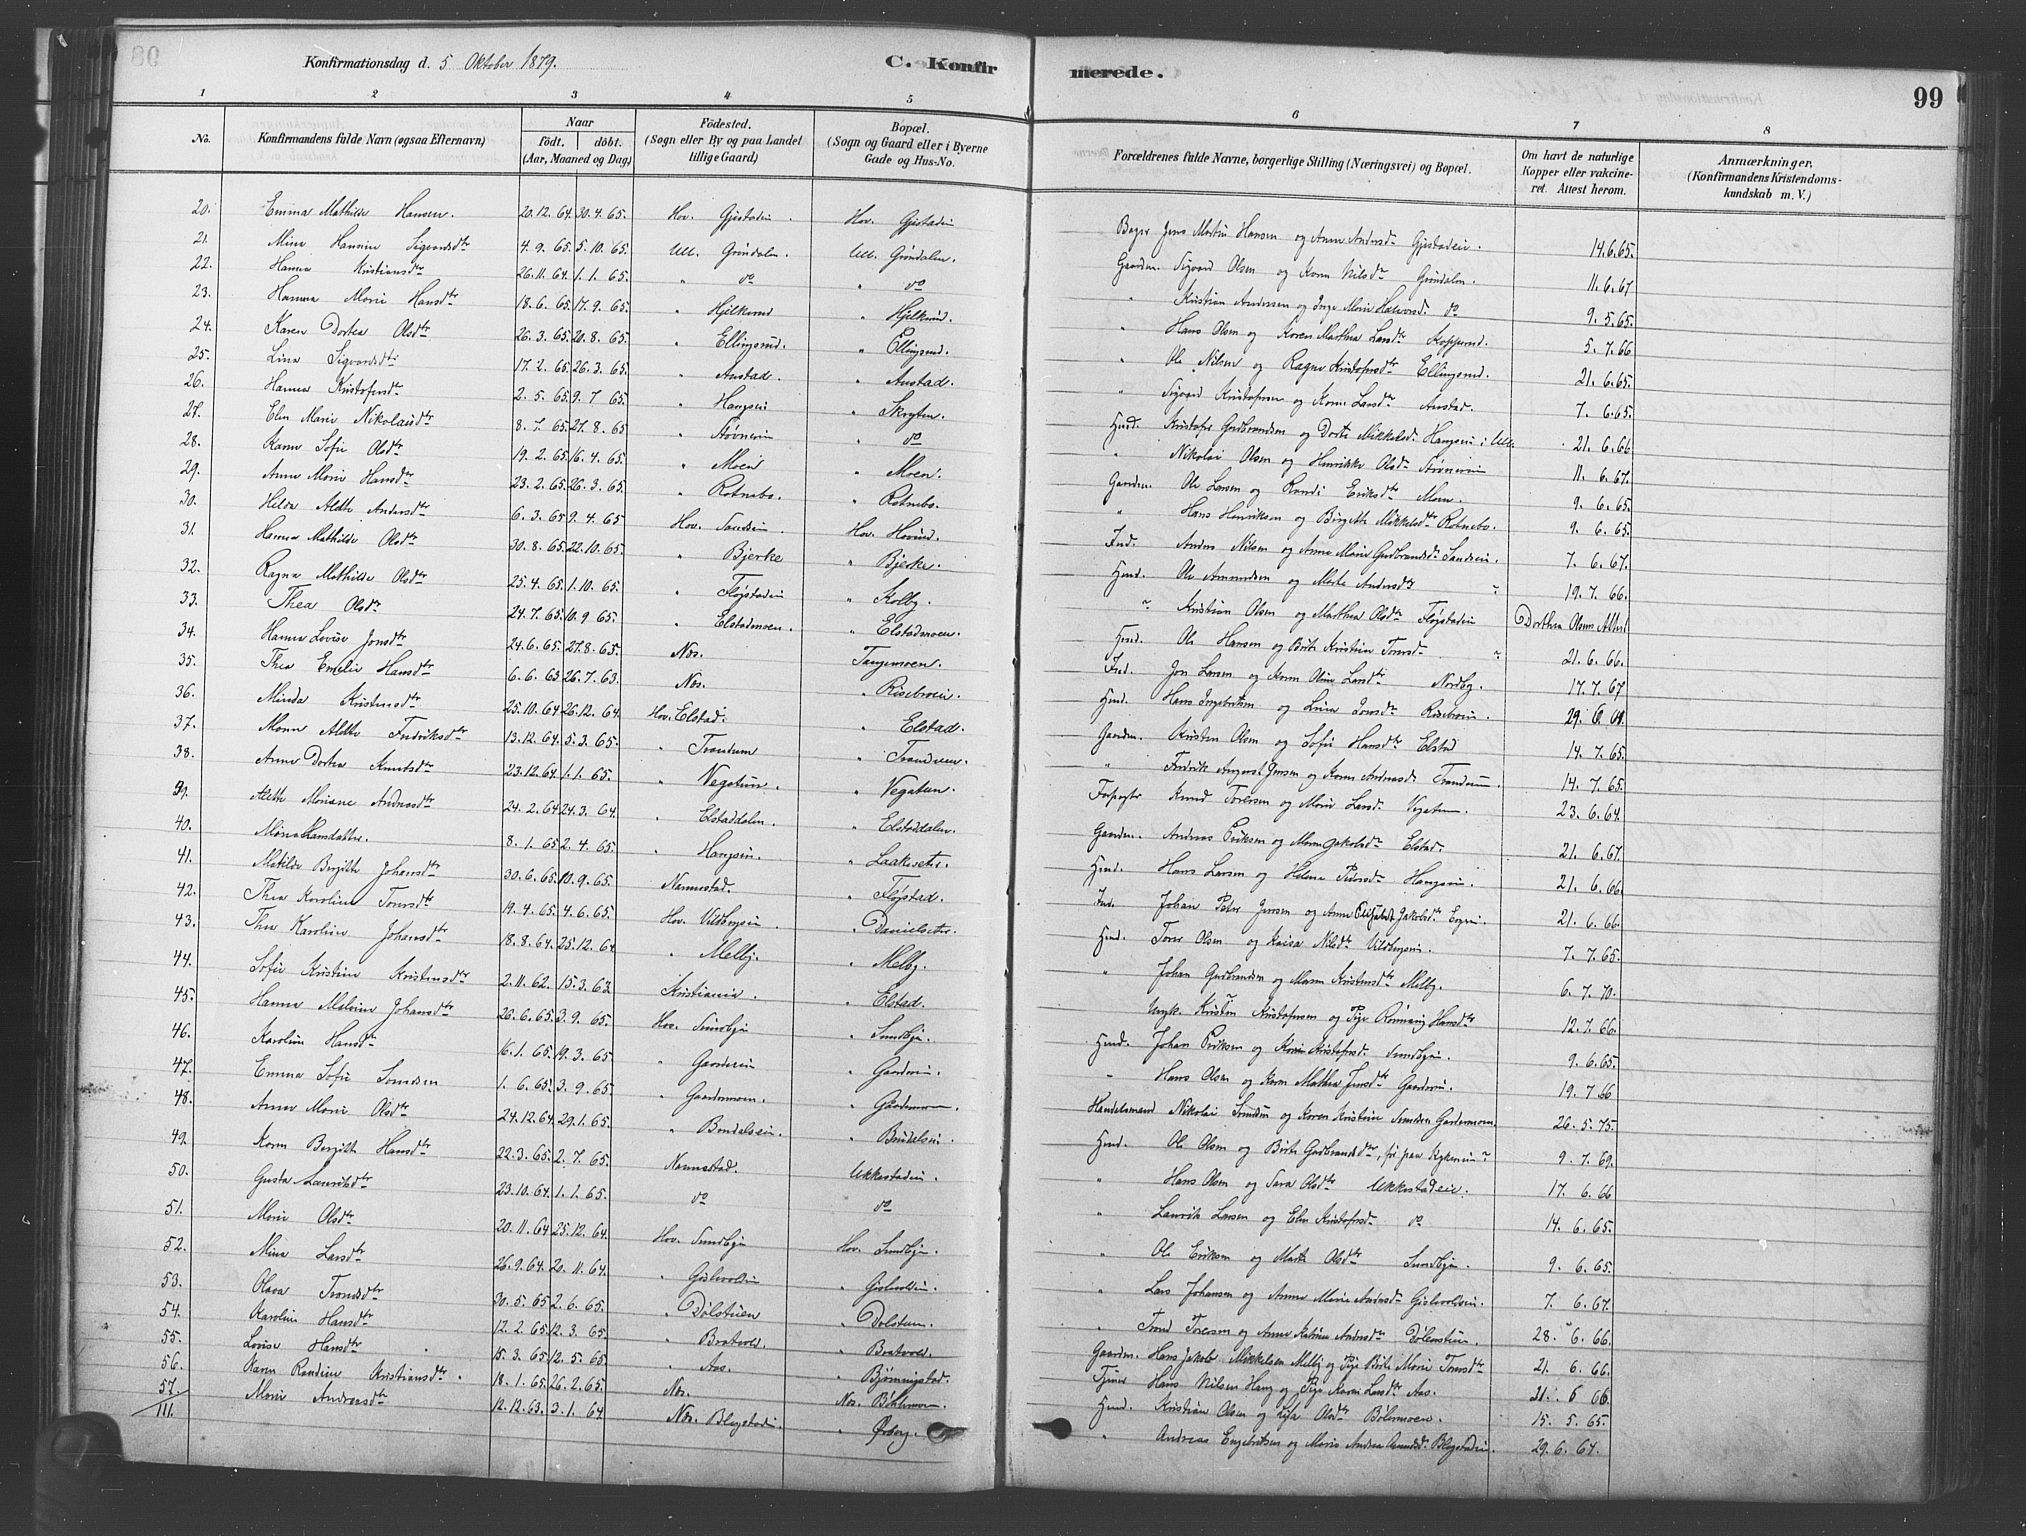 Konfirmationsdag d. 5 Oktober 1879.
C. Konfir
merede.
99
1 2 3 4 5 6 7 8
No.
Konfirmandens fulde Navn (ogsaa Efternavn)
Naar
födt. döbt.
(Aar, Maaned og Dag)
Födested.
(Sogn eller By og paa Landet tillige Gaard)
Bopæl.
(Sogn og Gaard eller i Byerne Gade og Hus-No.
Forældrenes fulde Navne, borgerlige Stilling (Næringsvei) og Bopæl.
Om havt de naturlige Kopper eller vakcineret. Attest herom.
Anmærkninger.
(Konfirmandens Kristendomskundskab m. V.)
20. Emma Mathilde Hansen. 20.12.64. 30.4.65. Hov. Gjestadeie Hov. Gjestadeie Jens Martin Hansen og Anne Andersd. Gjestadeie. 14.6.65.
21. Mina Hannine Sigvardsdtr 4.9.65. 5.10.65. Ull. Gröndalen. Ull. Gröndalen. Gaardm. Sigvard Olsen og Karen Nilsdr Gröndalen. 11.6.67
22. Hanna Kristiansdtr 26.11.64. 1.1.65. " do " do " Kristian Andersen og Inge Marie Halvorsd. do 9.5.65.
23. Hanna Marie Hansdtr 18.6.65. 17.9.65. " Hjelkerud " Hjelkerud. " Hans Olsen og Karen Marthea Larsdtr Kopperud. 5.7.66
24. Karen Dortea Olsdtr 26.3.65. 20.8.65. " Ellingsrud. " Ellingsrud. " Ole Nilsen og Ragne Kristofersdtr Ellingsrud. 21.6.65.
25. Lina Sigvardsdtr 17.2.65. 26.3.65. " Austad. " Austad. " Sigvard Kristofersen og Karen Larsdtr Austad. 7.6.65.
26. Hanna Kristofersdtr 2.5.65. 9.7.65. " Haugseie " Skryten. Husd. Kristofer Gudbrandsen og Dorte Mikkelsd. Haugseie i Ull. 21.6.66
27. Elen Marie Nikolaisdtr 8.7.65. 27.8.65. " Stövnereie " do " Nikolai Olsen og Henrikke Olsdr Stövnereie 11.6.67.
28. Karen Sofie Olsdtr 19.2.65. 16.4.65. " Moen " Moen. Gaardm. Ole Larsen og Randi Eriksdtr Moen. 9.6.65.
29. Anne Marie Hansdtr 23.2.65. 26.3.65. " Rotnebo. " Rotnebo. " Hans Henriksen og Birgitte Mikkelsdtr Rotnebo. 9.6.65.
30. Hilda Alette Andersdtr 6.3.65. 9.4.65. Hov. Sandseie. Hov. Hovind. Ind. Anders Nilsen og Anne Marie Gudbrandsd. Sandseie. 7.6.67.
31. Hanna Mathilde Olsdtr 30.8.65. 22.10.65. " Bjerke " Bjerke. Husd. Ole Amundsen og Marte Andersdtr " 19.7.66.
32. Ragna Mathilde Olsdtr 25.4.65. 1.10.65. " Fløgstadeie " Kolby. " Kristian Olsen og Marthea Olsdtr Fløgstadeie Dorthea Olsens Attest
33. Thea Olsdtr 24.7.65. 10.9.65. " Elstadmoen. " Elstadmoen. Husd. Ole Hansen og Birte Kristine Tores d. " 21.6.66.
34. Hanna Lovise Jonsdtr 24.6.65. 27.8.65. Nes. " Tangemoen. Ind. Jon Larsen og Karen Oline Larsdtr Nordby. 17.7.67
35. Thea Emelie Hansdtr 6.6.63. 26.7.63. Nes. " Risebroeie. Husd. Hans Ingebretsen og Lina Jonsdr Risebroeie. 29.6.64.
36. Minda Kristensdtr 25.10.64. 26.12.64. Hov. Elstad. " Elstad. Gaardm. Kristen Olsen og Sofie Hansdtr Elstad 14.7.65.
37. Maren Alette Fredriksdtr 13.12.64. 5.3.65. " Trandum " Trandum. " Fredrik August Jensen og Karen Andreasd. Trandum. 14.7.65.
38. Anne Dortea Knutsdtr 23.12.64. 1.1.65. " Vegstun. " Vegatun. Forpagter Knud Toresen og Marie Larsd. Vegatun. 23.6.64.
39. Alette Mariane Andreasdtr 24.2.64. 24.3.64. " Elstaddalen. " Elstaddalen. Gaardm. Andreas Eriksen og Maren Jakobsd. Elstad. 21.6.67.
40. Mina Hansdatter. 8.1.65. 2.4.65. " Haugseie. " Laakesæter. Husd. Hans Larsen og Helena Pedersd. Haugseie. 21.6.66.
41. Matilde Birgitte Johansdtr 30.6.65. 10.9.65. Nannestad. " Fløgstad. Ind. Johan Peter Jensen og Anne Elisabet Jakobsdtr 21.6.66.
42. Thea Karoline Toresdtr 19.4.65. 4.6.65. Hov. Vildbergeie " Danielseter. Husd. Tore Olsen og Kaisa Nilsdtr Vildbergeie. 7.7.65.
43. Thea Karoline Johansdtr 18.8.64. 25.12.64. " Melby. " Melby. " Johan Gudbrandsen og Maren Kristensdtr Melby. 6.7.70.
44. Sofie Kristine Kristensdtr 2.11.62. 15.3.63. Kristiania. " Elstad. Ungk. Kristen Kristofersen og Pige Rönnaug Hansdtr 12.7.66.
45. Hanna Malvine Johansdtr 26.6.65. 3.9.65. Hov. Sundbyeie " Sundbyeie. Husd. Johan Eriksen og Karen Kristofersd. Sundbyeie. 9.6.65.
46. Karoline Hansdtr 16.1.65. 19.3.65. " Gaardereie " Gaardereie. " Hans Olsen og Karen Mathea Jensdtr Gaardereie. 19.7.66
47. Emma Sofie Svendsen 1.6.65. 3.9.65. " Gardermoen. " Gardermoen. Handelsmand Nikolai Svendsen og Karen Kristine Svendsen Gardermoen. 26.5.75.
48. Anne Marie Olsdtr 24.12.64. 29.1.65. " Bondalseie. " Bondalseie. Husd. Ole Olsen og Birte Gudbrandsdtr 9.7.69.
49. Karen Birgitte Hansdtr 22.3.65. 2.7.65. Nannestad. Ukkestadeie. " Hans Olsen og Sara Olsdtr Ukkestadeie. 17.6.66
50. Gusta Lauritsdtr 23.10.64. 1.1.65. do do " Laurits Larsen og Elen Kristofersd. do 14.6.65.
51. Marie Olsdtr 20.11.64. 25.12.64. Hov. Sundbyeie Hov. Sundbyeie. " Ole Eriksen og Marte Olsdtr Sundbyeie. 9.6.65.
52. Mina Larsdtr 26.9.64. 20.11.64. " Gislevoldeie " Gislevoldeie. " Lars Johansen og Anne Marie Andersd. Gislevoldeie. 7.6.67.
53. Olava Trondsdtr 30.5.65. 2.6.65. " Dölstueie " Dolstueie. " Trond Toresen og Anne Katrine Andersdtr Dölenstueie. 28.6.66.
54. Karoline Hansdtr 12.2.65. 12.3.65. " Bratvold " Bratvold. Gaardm. Hans Jakob Mikkelsen Melby og Pige Birte Marie Toresdtr 21.6.66.
55. Lovise Hansdtr 15.3.65. 12.5.65. " Aas. " Bjömingstad. Tjener Hans Nilsen Haug og Pige Karen Larsdtr Aas. 21.6.66.
56. Karen Randine Kristiansdtr. 18.1.65. 26.2.65. Nes. Nes. Bölermoen. Husd. Kristian Olsen og Olsdtr Bölermoen. 15.5.65.
57. Marie Andreasdtr 12.12.63. 3.1.64 Nes. Blegstadeie " " Andreas Engebretsen og Marie Andrea Amundsd. Blegstadeie. 29.6.67.
111.